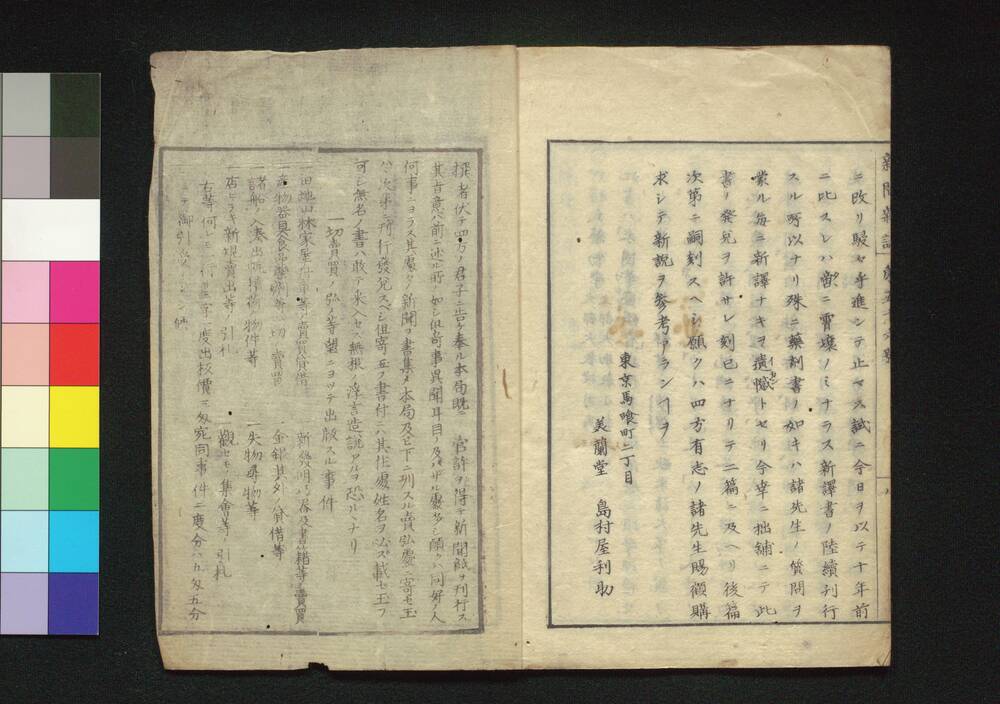 ニ改リ駸々乎進ンテ止マス試ニ今日ヲ以テ十年前
ニ比スレハ啻ニ霄壌ノミナラス新譯書ノ陸續刊行
スル所以ナリ殊ニ藥剤書ノ如キハ諸先生ノ質問ヲ
蒙ル毎ニ新譯ナキヲ遺憾トセリ今幸ニ拙舗ニテ此
書ノ發兌ヲ許サレ刻已ニナリテ二篇ニ及ヘリ後篇
次第ニ嗣刻スヘシ願クハ四方有志ノ諸先生賜顧購
求シテ新説ヲ参考アランヿヲ
東京馬喰町二丁目
美蘭堂 島村屋利助
撰者伏テ四方ノ君子ニ告ケ奉ル本局既ニ 官許ヲ得テ新聞紙ヲ刊行ス
其旨意ハ前ニ述ル所ノ如シ但奇事異聞耳目ノ及バザル處多シ願クハ同好ノ人
何事ニヨラス其處々ノ新聞ヲ書集メ本局及ヒ下ニ列スル賣弘處ヘ寄セ玉
ハヾ次第ニ刊行發兌スベシ但寄玉フ書付ニハ其住處姓名ヲ必ズ載セ玉フ
可シ無名ノ書ハ敢テ采入セス無根ノ浮言造説アルヲ恐ルヽナリ
一切賣買ノ弘メ等望ニヨッテ出版スル事件
一田地山林家屋 賣買貸借
一新發明ノ器及書籍等ノ賣買
一産物器具食 等一切ノ賣買
一金銀其外ノ貸借等
一諸船ノ入津出帆積荷ノ物件等
一失物尋物等
一店ヒラキ新規賣出等ノ引札
一觀セモノ集會等ノ引札
右等何レモ 一度出板價三匁宛同事件二度分ハ五匁五分